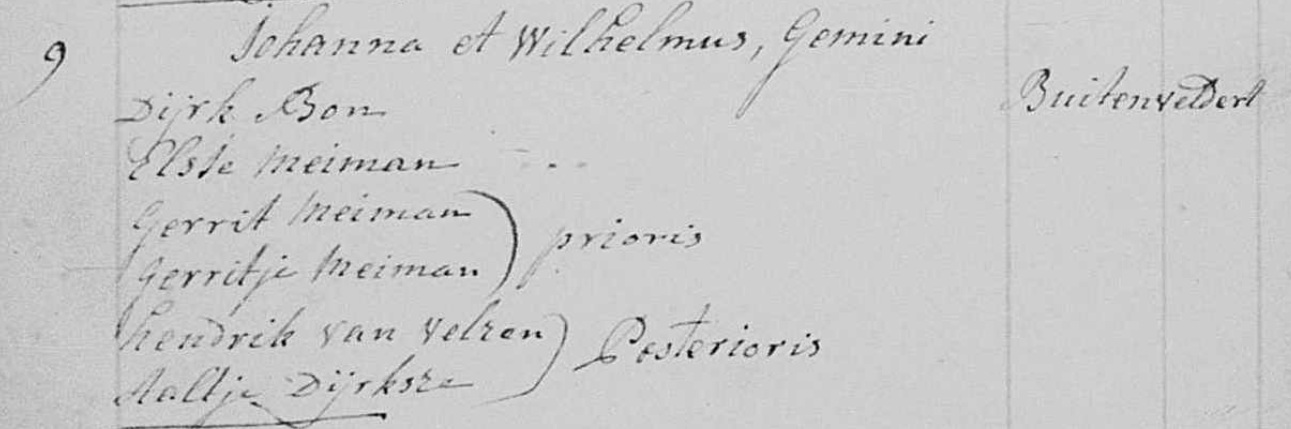 9 Johanna et Wilhelmus, Gemini
Dijrk Bon Buitenveldert
Elsje Meiman
Gerrit Meiman
prioris
Gerritje Meiman
Hendrik van Velzen
Posterioris
Aaltje Dijrksze